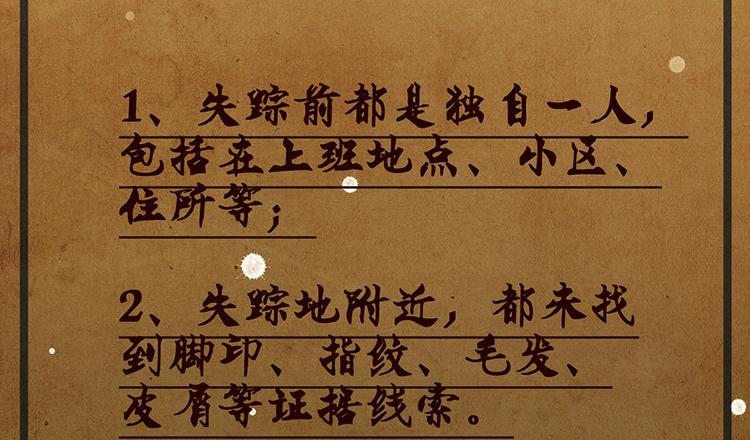 1、失踪前都是独自一人，
包括在上班地点、小区、
住所等；
2、失踪地附近，都未找
到脚印、指纹、毛发、
皮屑等证据线索。